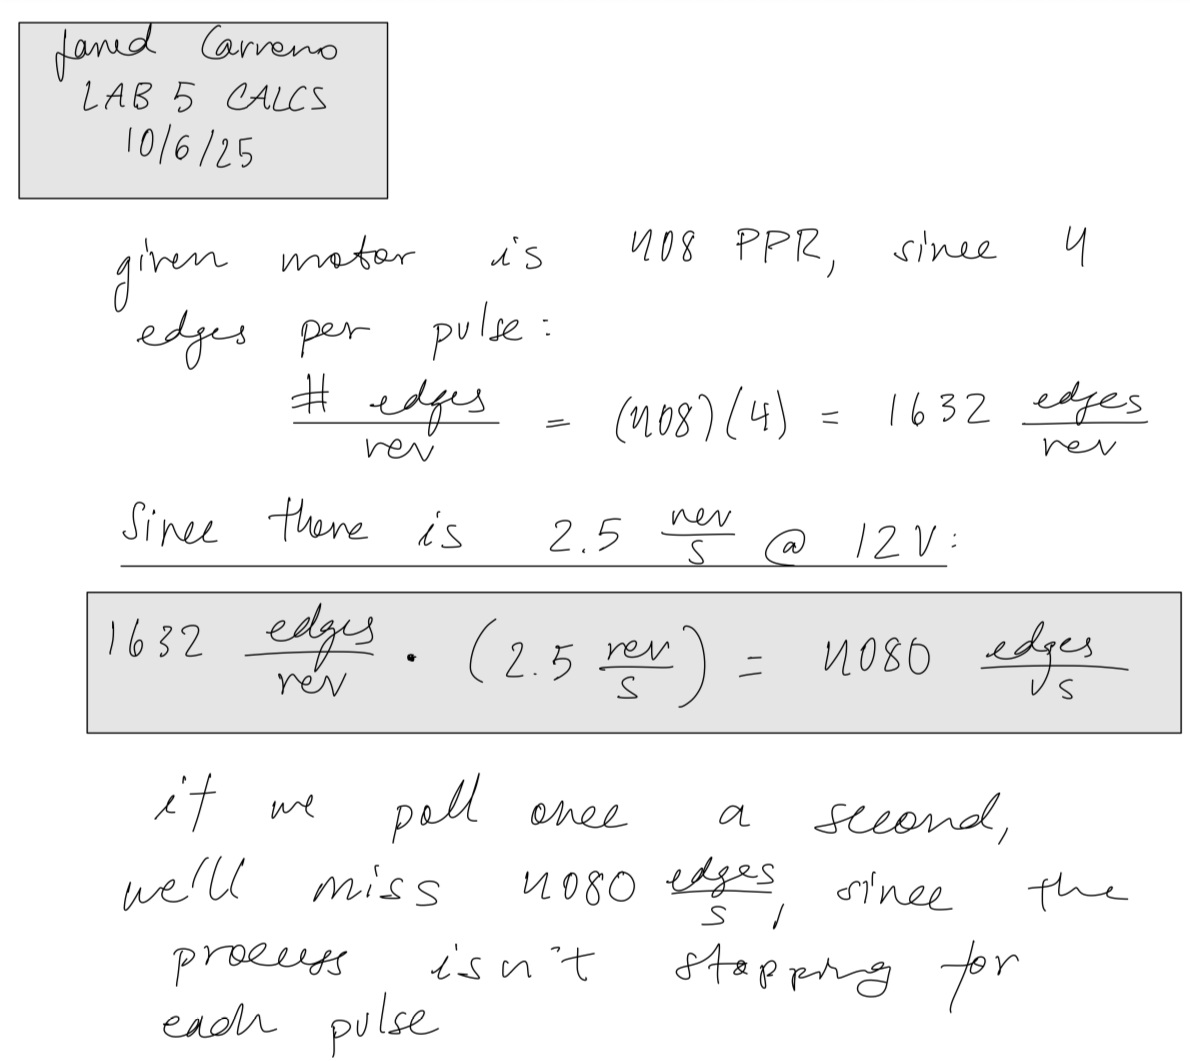 Jared Carreno
LAB 5 CALCS
10/6/25
given motor is 408 PPR, since 4
edges per pulse:
# edges/rev = (408)(4) = 1632 edges/rev
Since there is 2.5 rev/s @ 12V:
1632 edges/rev · (2.5 rev/s) = 4080 edges/s
if we poll once a second,
we'll miss 4080 edges/s, since the
process isn't stopping for
each pulse